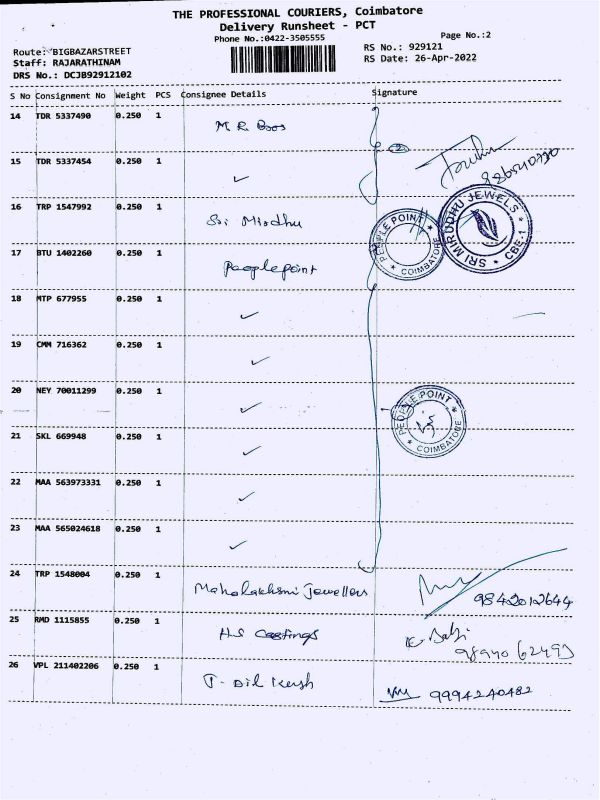 THE PROFESSIONAL COURIERS, Coimbatore
Delivery Runsheet - PCT
Phone No.:0422-3505555
Page No.:2
Route: BIGBAZARSTREET
RS No.: 929121
Staff: RAJARATHINAM
RS Date: 26-Apr-2022
DRS No.: DCJB92912102
S No Consignment No Weight PCS Consignee Details Signature
14 TDR 5337490 0.250 1 M R Bros
2
15 TDR 5337454 0.250 1 ✓
16 TRP 1547992 0.250 1 Sri Mirdhu
SRI MIRUDHU JEWELS CBE-1
PEOPLE POINT COIMBATORE
17 BTU 1402260 0.250 1 Peoplepoint
18 MTP 677955 0.250 1 ✓
19 CMM 716362 0.250 1 ✓
20 NEY 70011299 0.250 1 ✓
PEOPLE POINT COIMBATORE
21 SKL 669948 0.250 1 ✓
22 MAA 563973331 0.250 1 ✓
23 MAA 565024618 0.250 1 ✓
24 TRP 1548004 0.250 1 Mahalakshmi Jewellers 9842012644
25 RMD 1115855 0.250 1 H.S Castings
26 VPL 211402206 0.250 1 T. Dil Kush 9994240482